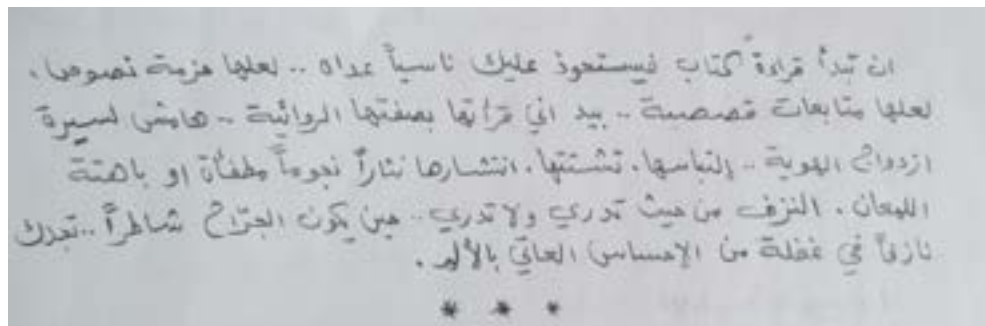 ان تبدأ قراءة كتاب فيستحوذ عليك ناسياً عداه .. لعلها حزمة نصوص،
لعلها متابعات قصصية .. بيد اني قرأتها بصفتها الروائية .. هامش لسيرة
ازدواج الهوية .. إلتباسها، تشتتها، انتشارها نثاراً نجوماً مطفأة او باهتة
اللمعان، النزف من حيث تدري ولا تدري .. حين يكون الجرّاح شاطراً .. تجدك
نازفاً في غفلة من الإحساس العاتي بالألم.
* * *